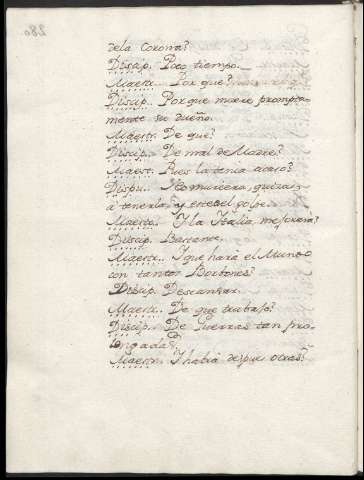 280
dela Corona?
Discip. Poco tiempo.
Maestr.. Por què?
Discip.. Porque muere prompta-
mente su dueño.
Maestr.. De què?
Discip.. De mal de Madre?
Maest. Pues la tenia acaso?
Discip.. No muriera, quizas,
à tenerla, y este es el golpe.
Maestr.. Y la Italia, mejorarà?
Discip. Bastante.
Maestr.. Y què harà el Mundo
con tantos Borbones?
Discip. Descansar.
Maestr.. De que trabajo?
Discip.. De Guerras tan pro-
longadas.
Maestr.. Y habrà despues otras?